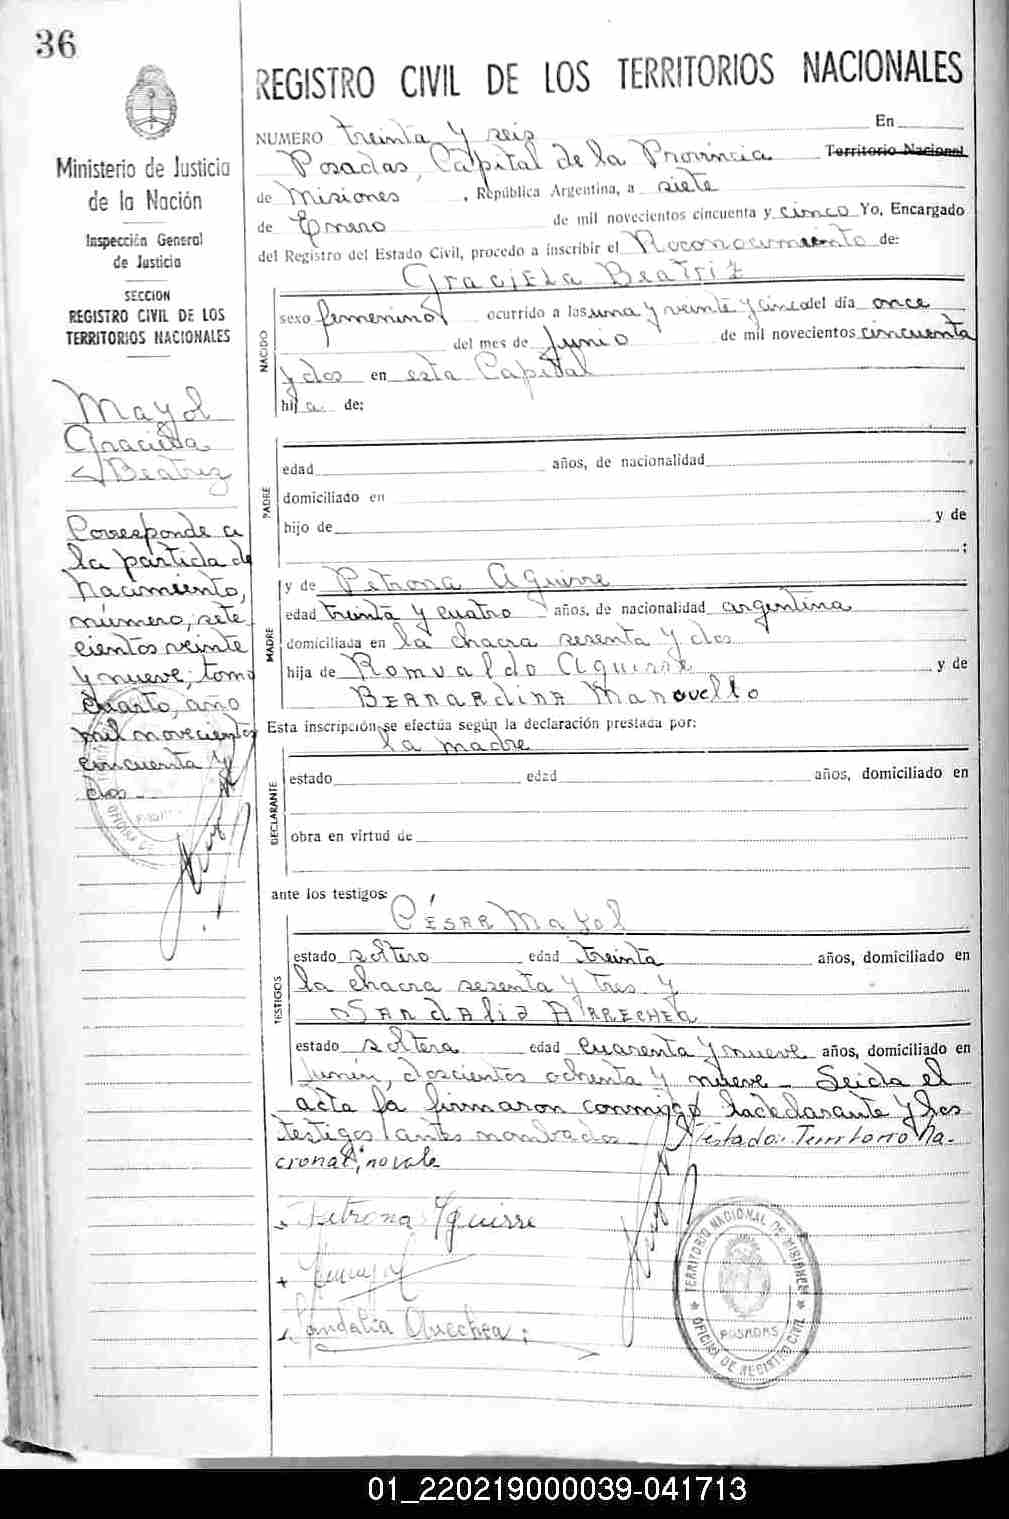 36
Ministerio de Justicia
de la Nación
Inspección General
de Justicia
SECCION
REGISTRO CIVIL DE LOS
TERRITORIOS NACIONALES
Mayol
Graciela
Beatriz
Corresponde a
la partida de
Nacimiento,
número, sete
cientos veinte
y nueve, tomo
cuarto, año
mil novecientos
cincuenta y
dos.-
REGISTRO CIVIL DE LOS TERRITORIOS NACIONALES
NUMERO treinta y seis En
Posadas, Capital de la Provincia Territorio Nacional
de Misiones, República Argentina, a siete
de Enero de mil novecientos cincuenta y cinco Yo, Encargado
del Registro del Estado Civil, procedo a inscribir el Reconocimiento de:
Graciela Beatriz
NACIDO
sexo femenino ocurrido a las una y veinte y cinco del día once
del mes de Junio de mil novecientos cincuenta
y dos en esta Capital
hija de:
PADRE
edad años, de nacionalidad
domiciliado en
hijo de y de
;
MADRE
y de Petrona Aguirre
edad treinta y cuatro años, de nacionalidad argentina
domiciliada en la chacra sesenta y dos
hija de Romualdo Aguirre y de
Bernardina Manovello
Esta inscripción se efectúa según la declaración prestada por:
la madre
DECLARANTE
estado edad años, domiciliado en
obra en virtud de
ante los testigos:
César Mayol
TESTIGOS
estado soltero edad treinta años, domiciliado en
la chacra sesenta y tres y
Sandalia Arrechea
estado soltera edad cuarenta y nueve años, domiciliado en
Junín, doscientos ochenta y nueve - Leida el
acta la firmaron conmigo la declarante y los
testigos antes nombrados - Testado: Territorio Na-
cional; no vale
Petrona Aguirre
Sandalia Arrechea
TERRITORIO NACIONAL DE MISIONES
POSADAS
OFICINA DE REGISTRO CIVIL
01_220219000039-041713